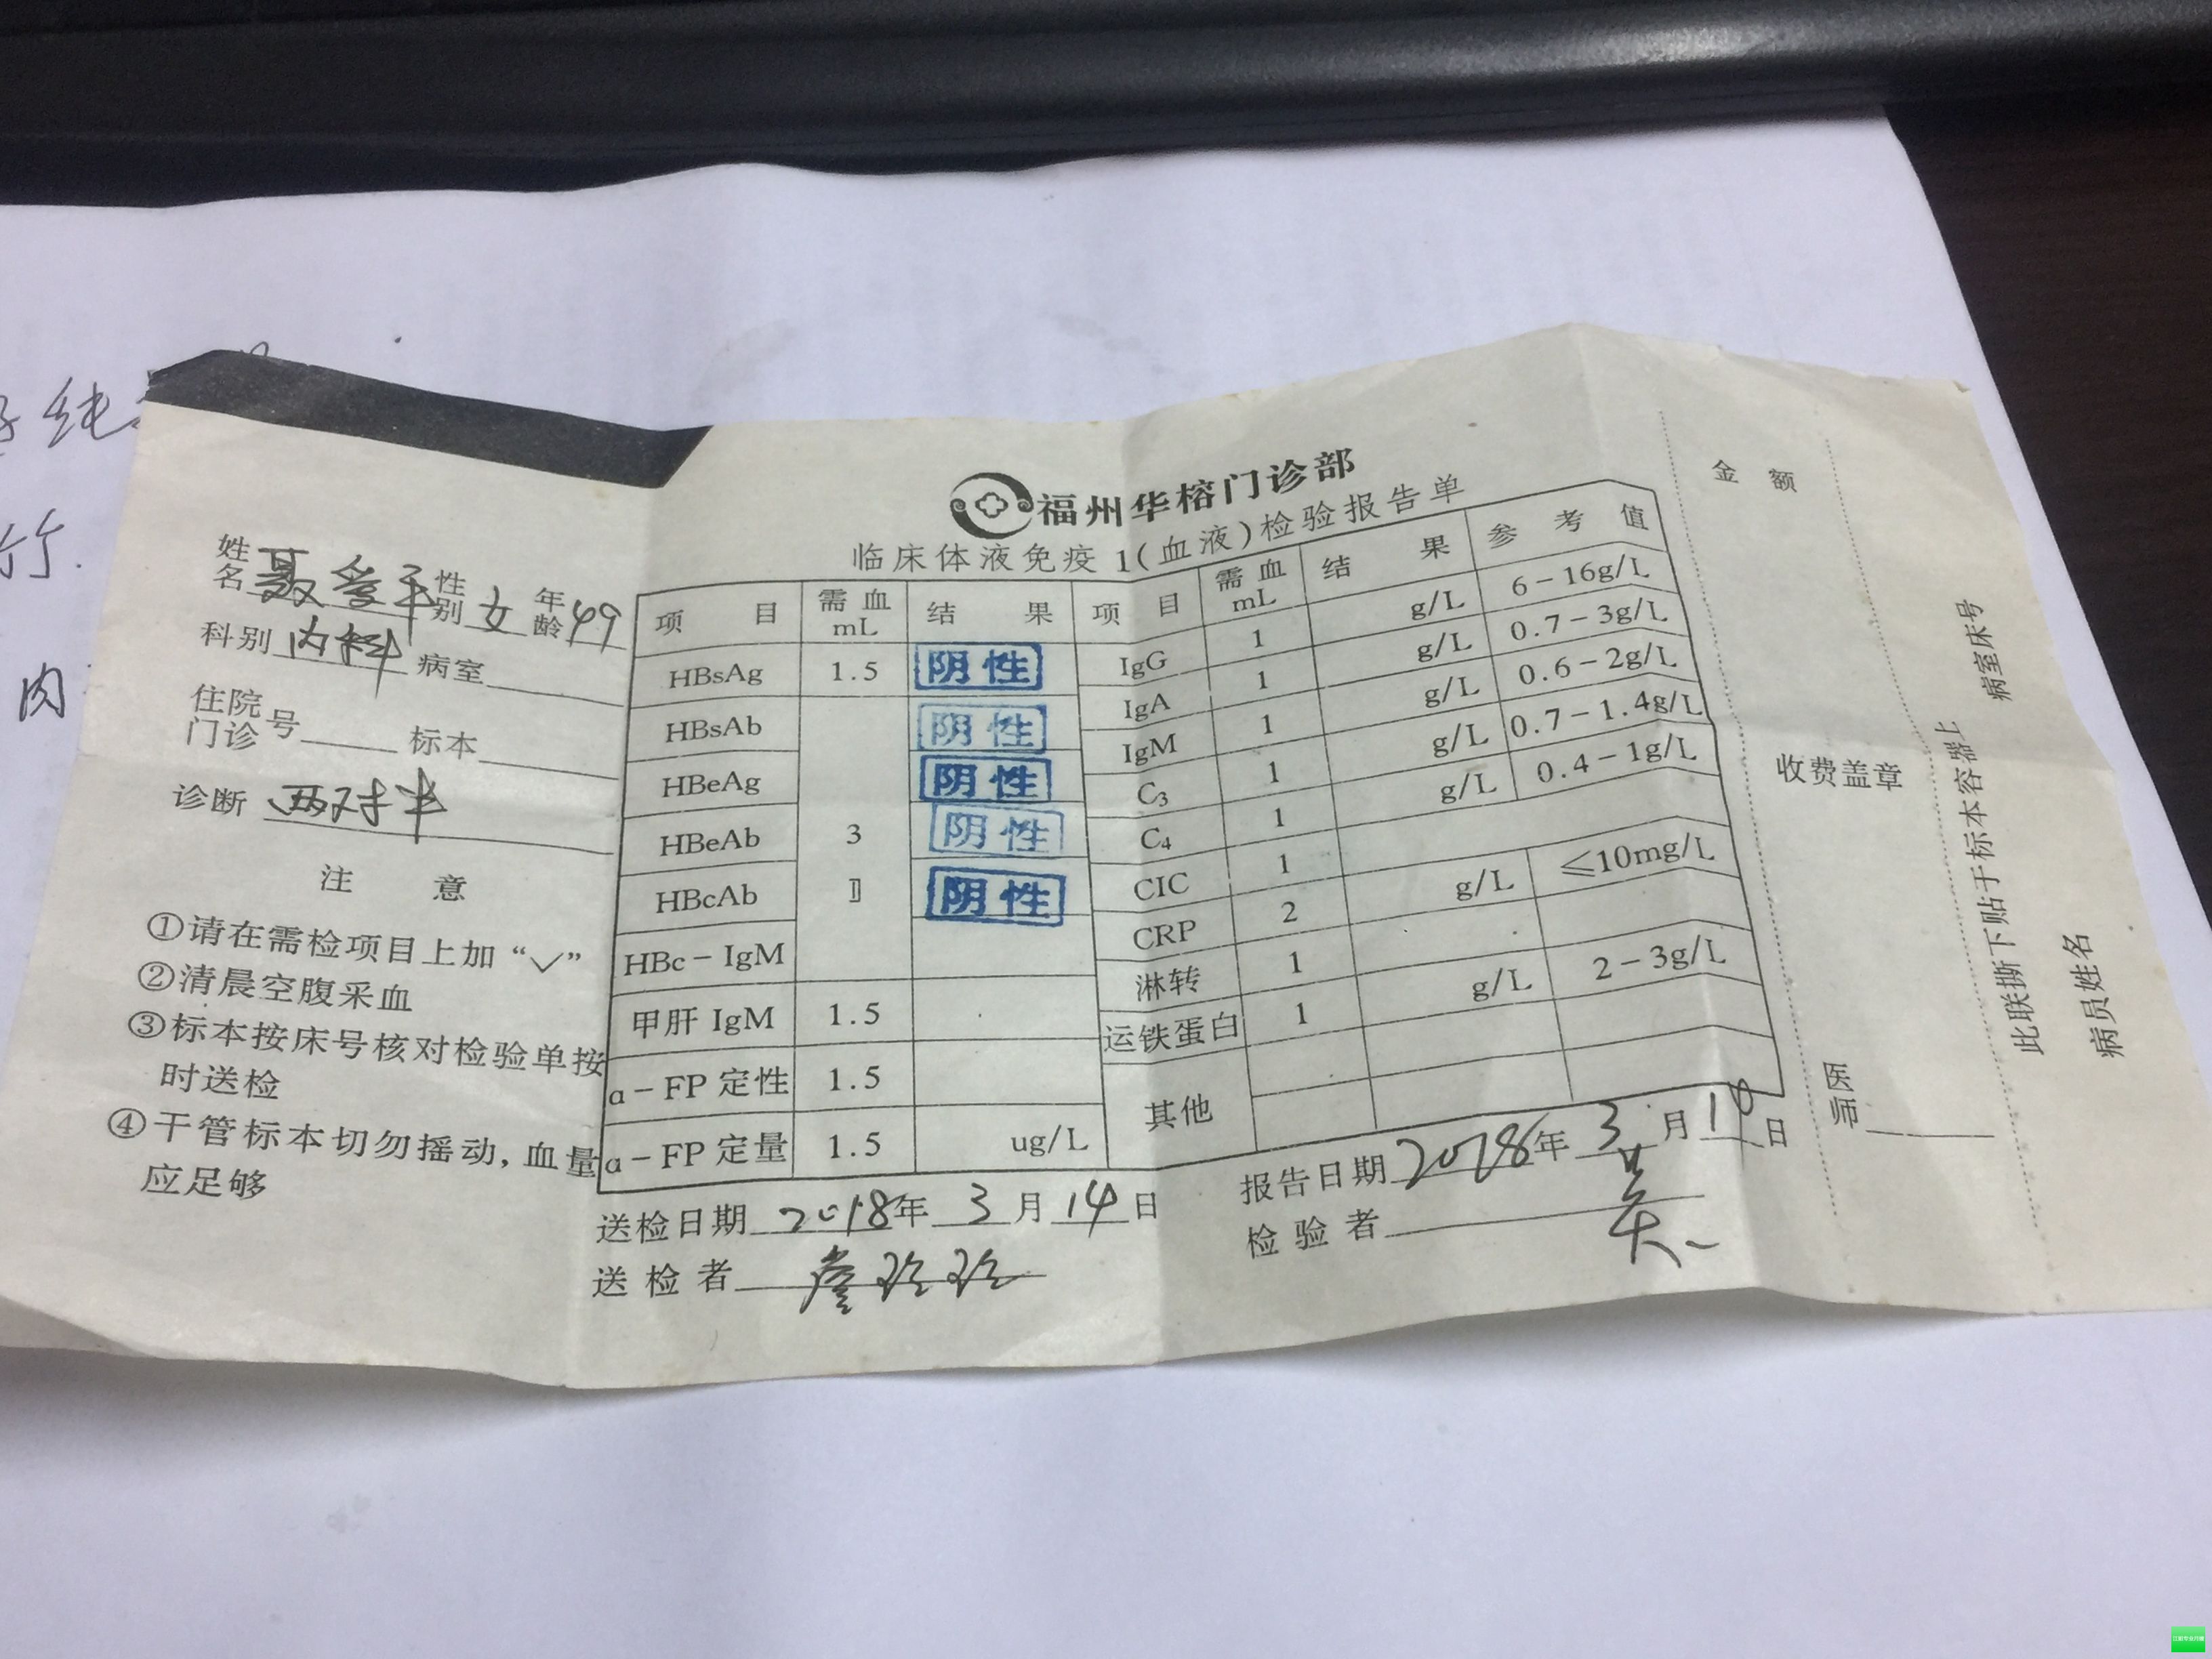 纯
竹.
肉
福州华榕门诊部
临床体液免疫1(血液)检验报告单
姓名 聂 性别 女 年龄 49
科别 内科 病室
住院门诊号 标本
诊断 两对半
注 意
①请在需检项目上加“✓”
②清晨空腹采血
③标本按床号核对检验单按
时送检
④干管标本切勿摇动,血量
应足够
项 目 需血mL 结 果
HBsAg 1.5 阴性
HBsAb 阴性
HBeAg 阴性
HBeAb 3 阴性
HBcAb 阴性
HBc-IgM
甲肝 IgM 1.5
α-FP 定性 1.5
α-FP 定量 1.5 ug/L
项 目 需血mL 结 果 参 考 值
IgG 1 g/L 6-16g/L
IgA 1 g/L 0.7-3g/L
IgM 1 g/L 0.6-2g/L
C₃ 1 g/L 0.7-1.4g/L
C₄ 1 g/L 0.4-1g/L
CIC 1
CRP 2 g/L ≤10mg/L
淋转 1
运铁蛋白 1 g/L 2-3g/L
其他
送检日期 2018年 3 月 14 日
送检者 詹玲玲
报告日期 2018年 3 月 日
检验者
金 额
收费盖章
医师
此联撕下贴于标本容器上
病室床号
病员姓名